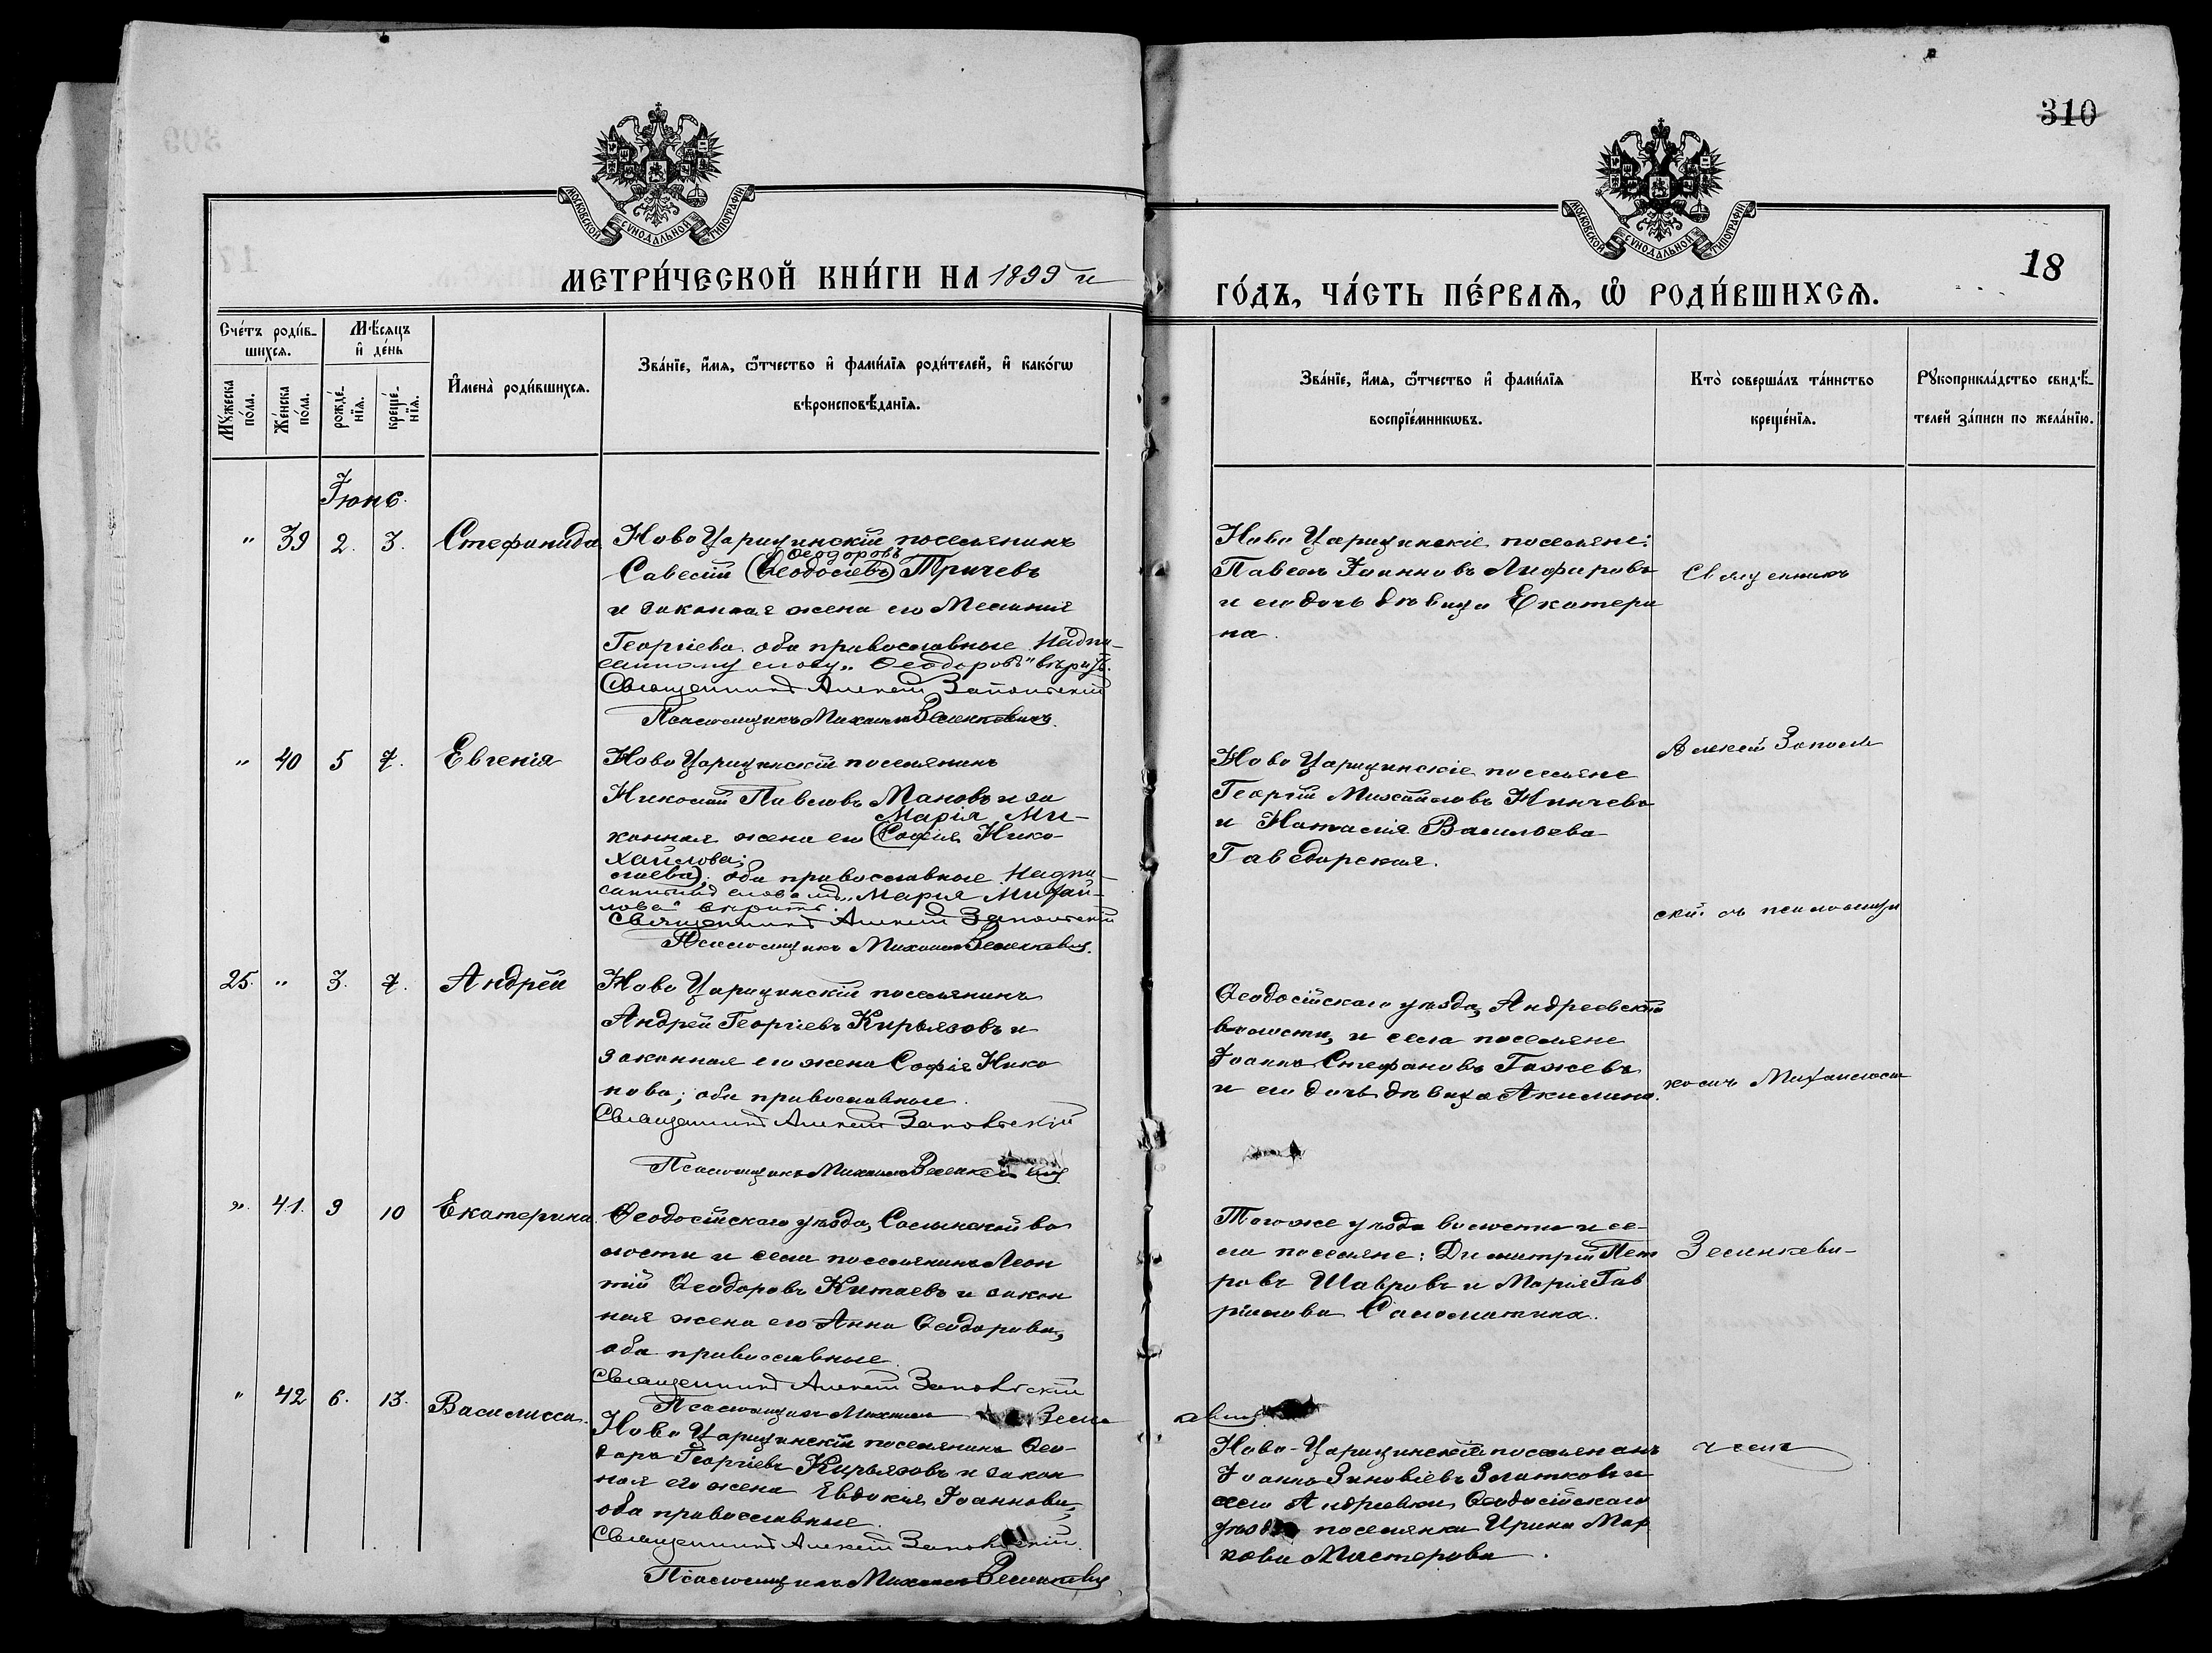 310
МОСКОВСКОЙ СѴНОДАЛЬНОЙ ТИПОГРАФІИ
МОСКОВСКОЙ СѴНОДАЛЬНОЙ ТИПОГРАФІИ
18
МЕТРИ́ЧЕСКОЙ КНИ́ГИ НА 1899 й
ГО́ДЪ, ЧА́СТЬ ПЕ́РВАѦ, Ѽ РОДИ́ВШИХСѦ.
Сче́тъ роди́в-
шихсѧ.
Мꙋ́жеска по́ла.
Же́нска по́ла.
Мѣ́сѧцъ
и҆ де́нь
рожде́-
нїѧ.
креще́-
нїѧ.
И҆мена̀ роди́вшихсѧ.
Зва́нїе, и҆́мѧ, ѻ҆́тчество и҆ фами́лїѧ роди́телей, и҆ како́гѡ
вѣроисповѣ́данїѧ.
Зва́нїе, и҆́мѧ, ѻ҆́тчество и҆ фами́лїѧ
воспрїе́мникѡвъ.
Кто̀ соверша́лъ та́инство
креще́нїѧ.
Рꙋкоприкла́дство свидѣ́-
телей за́писи по жела́нїю.
Іюнь.
" 39 2. 3. Стефанида
Ново Царицинскій поселянинъ
Ѳеодоровъ
Савелій (Ѳеодосіевъ) Тричевъ
и законная жена его Меланія
Георгіева, оба православные. Надпи-
санному слову „Ѳеодоровъ" вѣрить.
Священникъ Алексій Запольскій
Псаломщикъ Михаилъ Зелинкевичъ.
Ново Царицинскіе поселяне:
Павелъ Іоанновъ Лифировъ
и его дочь дѣвица Екатери
на.
Священникъ
" 40 5 7. Евгенія
Ново Царицинскій поселянинъ
Николай Павловъ Мановъ и за
Марія Ми-
конная жена его (Софія Нико-
хайлова;
лаева); оба православные. Надпи-
саннымъ словамъ „Марія Михай-
лова" вѣрить.
Священникъ Алексій Запольскій
Псаломщикъ Михаилъ Зелинкевичъ.
Ново Царицинскіе поселяне
Георгій Михайловъ Нинчевъ
и Наталія Васильева
Гавдарская.
Алексій Заполь
скій съ псаломщи
25. " 3. 7. Андрей
Ново Царицинскій поселянинъ
Андрей Георгіевъ Кирьязовъ и
законная его жена Софія Нико
нова; оба православные.
Священникъ Алексій Запольскій
Псаломщикъ Михаилъ Зелинкевичъ
Ѳеодосійскаго уѣзда, Андреевской
волости, и села поселяне
Іоаннъ Стефановъ Гажевъ
и его дочь дѣвица Акилина.
комъ Михаиломъ
" 41. 9 10 Екатерина.
Ѳеодосійскаго уѣзда, Салынской во
лости и села поселянинъ Леон
тій Ѳеодоровъ Китаевъ и закон
ная жена его Анна Ѳеодорова,
оба православные.
Священникъ Алексій Запольскій
Псаломщикъ Михаилъ Зелин
кевичъ
Того же уѣзда волости и се-
ла поселяне: Димитрій Пет
ровъ Шавровъ и Марія Гав
ріилова Саломатина.
Зелинкеви-
" 42 6. 13. Василисса.
Ново Царицинскій поселянинъ Ѳео-
доръ Георгіевъ Кирьязовъ и закон
ная его жена Евдокія Іоаннова,
оба православные.
Священникъ Алексій Запольскій.
Псаломщикъ Михаилъ Зелинкевичъ
Ново-Царицинскій поселянинъ
Іоаннъ Зиновіевъ Златковъ и
села Андреевки, Ѳеодосійскаго
уѣзда поселянка Ирина Мар
кова Мастерова.
чемъ